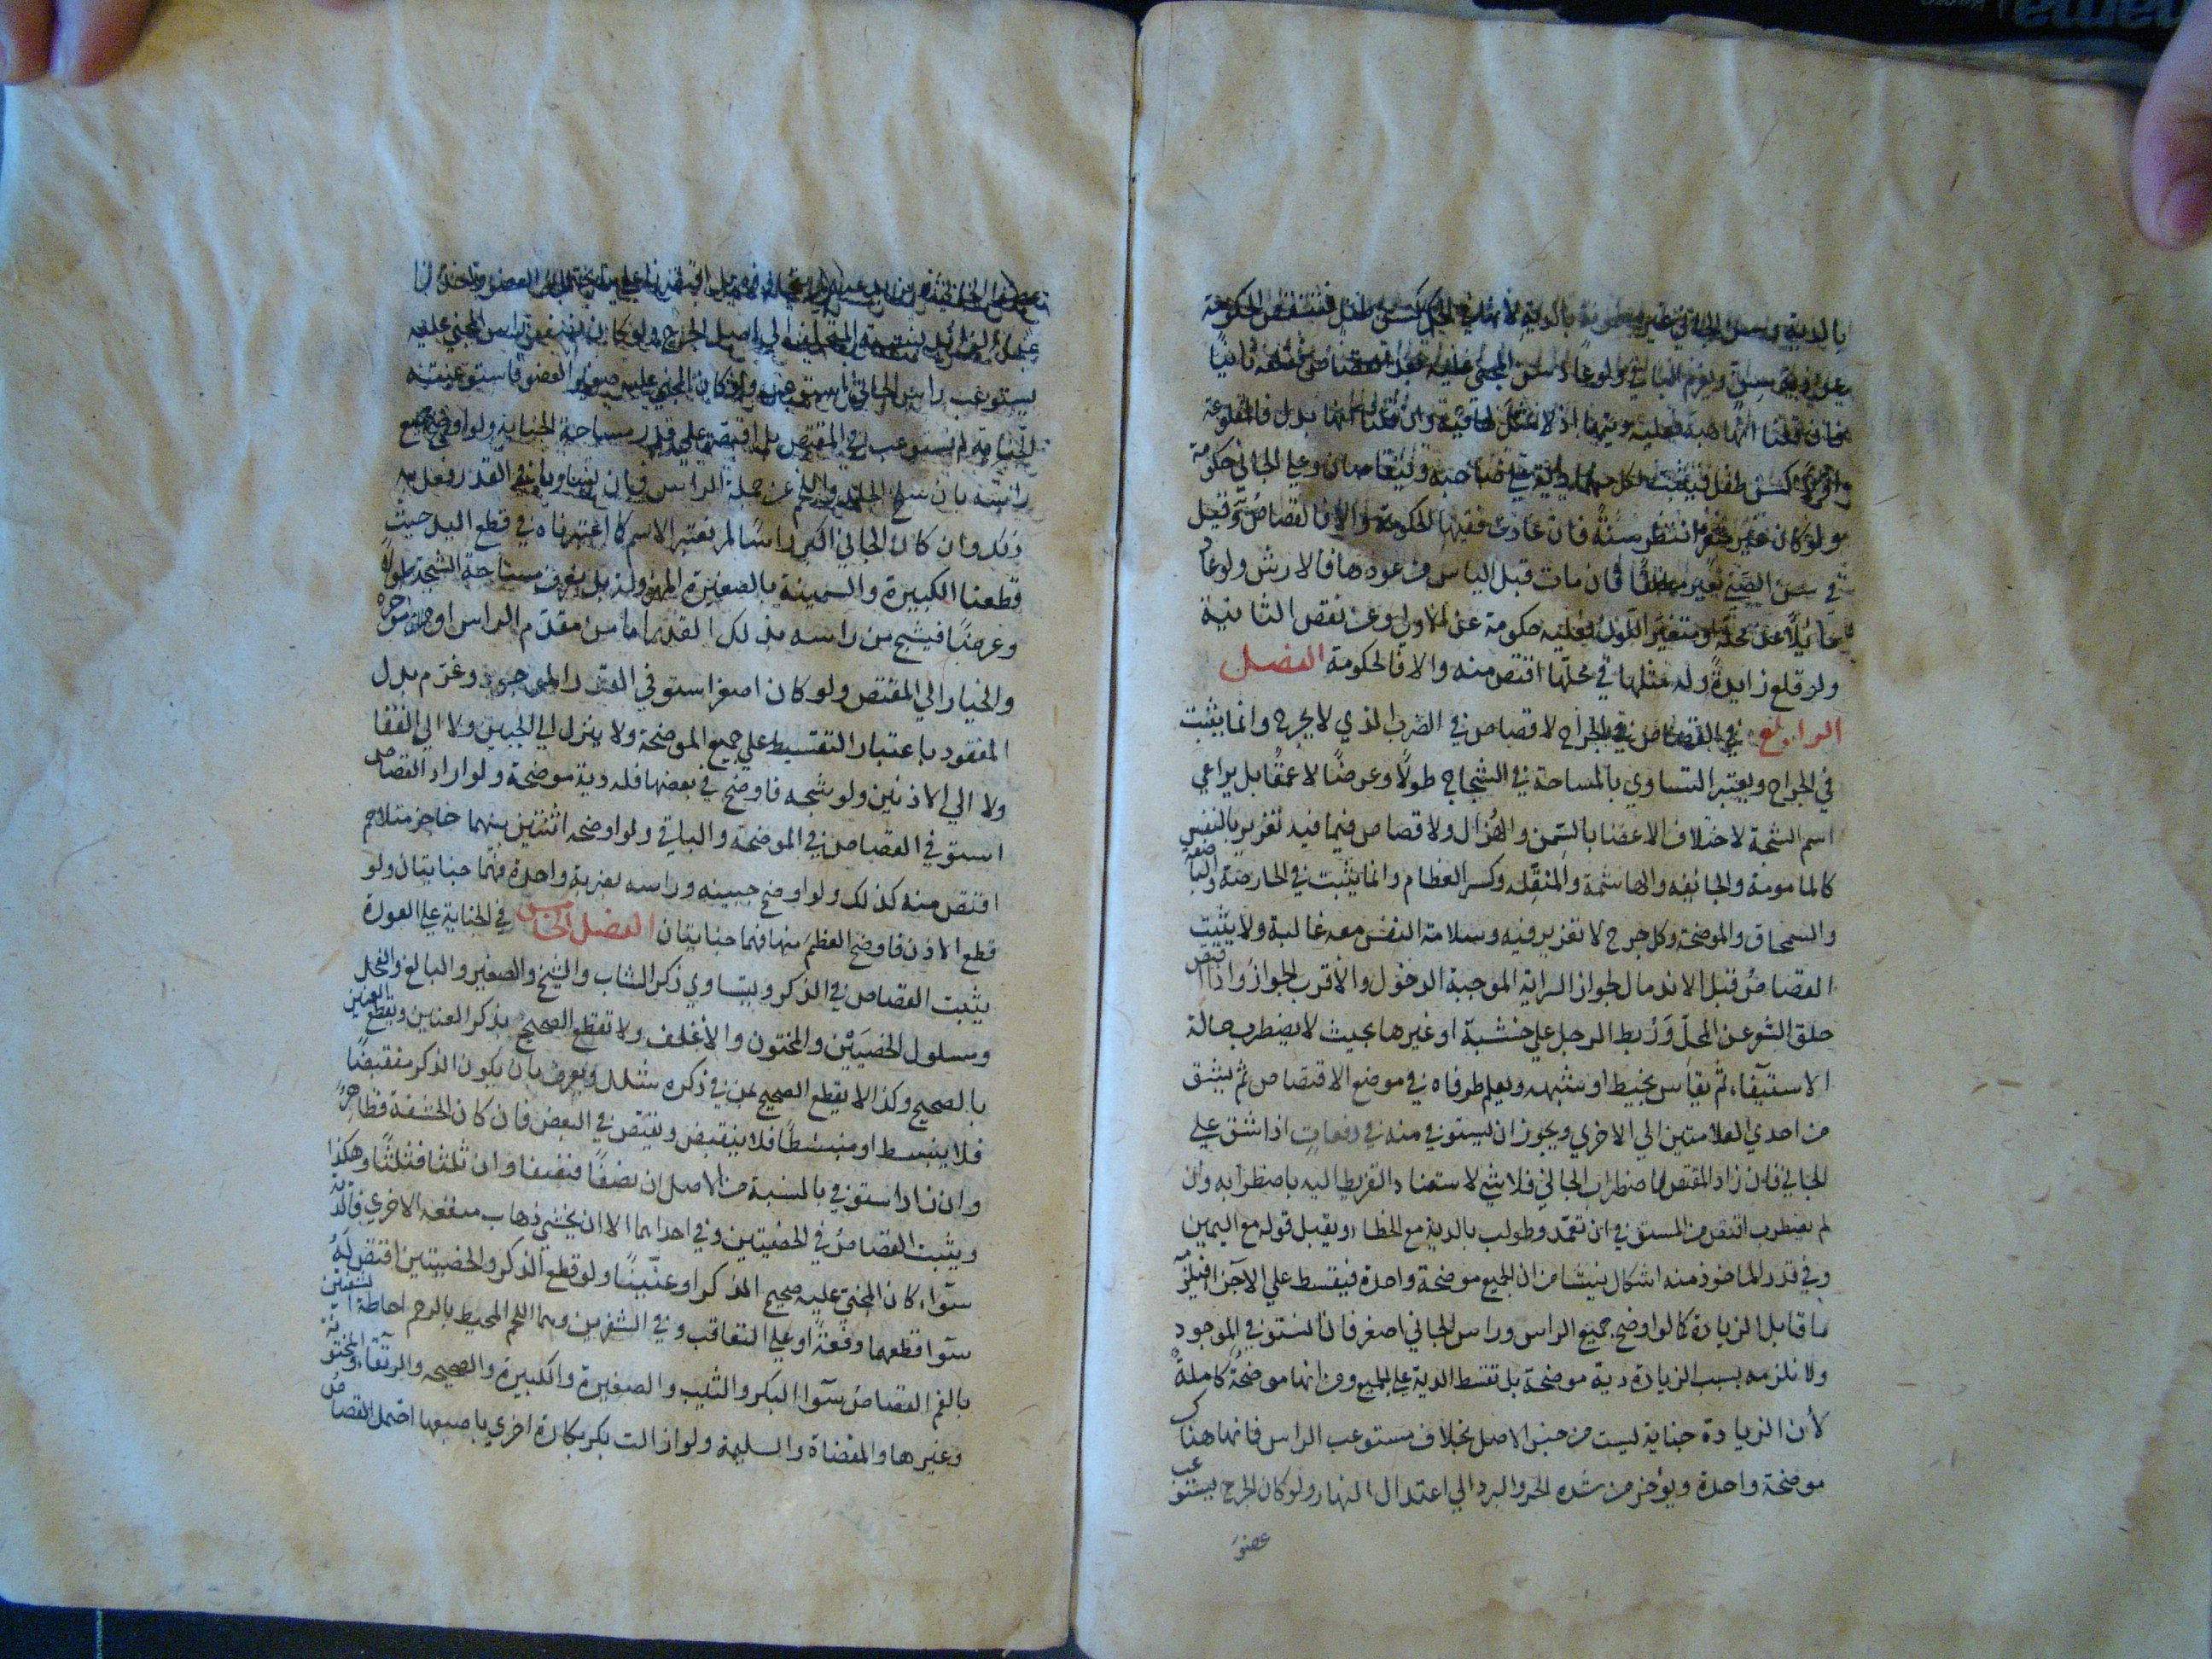 بالدية وسن الجاني غير مضمونة بالدية لأنها في كسن طفل فتنقص الحكومة
عن دية سن ويغرم الباقي ولو عادت سن المجني عليه بعد القصاص ثانيا
فان قلنا انها هبة فعليه ديتها اذ لا مثل وان قلنا انها بدل فالمقلوعة
كسن طفل فيثبت لكل منهما دية على صاحبه ويتقاصان وعلي الجاني حكومة
ولو كان غير مثغر انتظر سنة فان عادت ففيها الحكومة والا فالقصاص وقيل
في سن الصبي بعير مطلقا فان مات قبل الياس من عودها فالارش ولو عاد
مائلا عن محله او متغير اللون فعليه حكومة عن الاولي وعن نقص الثانية
ولو قلع زايدة وله مثلها في محلها اقتص منه والا فالحكومة الفصل
الرابع في القصاص في الجراح لا قصاص في الضرب الذي لا يجرح وانما يثبت
في الجراح ويعتبر التساوي بالمساحة في الشجاج طولا وعرضا لا عمقا بل يراعي
اسم الشجة لاختلاف الاعضا بالسمن والهزال ولا قصاص فيما فيه تغرير بالنفس
كالمامومة والجائفه والهاشمة والمنقله وكسر العظام وانما يثبت في الحارصة والباضعه
والسمحاق والموضحة وكل جرح لا تغرير فيه وسلامة النفس معه غالبة ولا يثبت
القصاص قبل الاندمال لجواز السراية الموجبة الدخول والاقرب الجواز واذا اقتص
حلق الشعر عن المحل وربط الرجل علي خشبة او غيرها بحيث لا يضطرب حالة
الاستيفاء ثم يقاس بخيط او شبهه ويعلم طرفاه في موضع الاقتصاص ثم يشق
من احدي العلامتين الي الاخري ويجوز ان يستوفي منه في دفعات اذا شق علي
الجاني فان زاد المقتص لاضطراب الجاني فلا شي لاستناد التفريط اليه باضطرابه وان
لم يضطرب اقتص من المستوفي ان تعمد وطولب بالدية مع الخطا ويقبل قوله مع اليمين
وفي قدر الماخوذ منه اشكال ينشا من ان الجميع موضحة واحدة فيقسط علي الاجزا فيلزم
ما قابل الزيادة كما لو اوضح جميع الراس وراس الجاني اصغر فانا نستوفي الموجود
ولا نلزمه بسبب الزيادة دية موضحة بل تقسط الدية علي الجميع ومن انها موضحة كاملة
لأن الزيادة جناية ليست من جنس الاصل بخلاف مستوعب الراس فانها هناك
موضحة واحدة ويؤخر من شده الحر والبرد الي اعتدال النهار ولو كان الجرح يستوعب
عضو
عضو الجاني
بل يستوعب راس المجني عليه
يستوعب راس الجاني استوعب وان كان المجني عليه صغير العضو فاستوعبته
الجناية لم يستوعب في المقتص بل اقتص علي قدر مساحة الجناية ولو اوضح جميع
راسه بان سلخ الجلد واللحم عن جملة الراس فان تساويا في القدر فعل به
ذلك وان كان الجاني اكبر راسا لم نعتبر الاسم كما اعتبرناه في قطع اليد حيث
قطعنا الكبيرة والسمينة بالصغيرة المهزولة بل يعرف مساحة الشجة طولا
وعرضا فيشج من راسه بذلك القدر اما من مقدم الراس او مؤخره
والخيار الي المقتص ولو كان اصغر استوفي القدر الموجود وغرم بدل
المفقود باعتبار التقسيط علي جميع الموضحة ولا ينزل الي الجبين ولا الي القفا
ولا الي الاذنين ولو شجه فاوضح في بعضها فله دية موضحة ولو اراد القصاص
استوفي القصاص في الموضحه والباقي ولو اوضحه اثنتين بينهما حاجز متلاحم
اقتص منه كذلك ولو اوضح جبينه وراسه بضربة واحدة فهما جنايتان ولو
قطع الاذن فاوضح العظم منها فهما جنايتان الفصل الخامس في الجناية علي العورة
يثبت القصاص في الذكر ويتساوي ذكر الشاب والشيخ والصغير والبالغ والفحل
ومسلول الخصيتين والمختون والاغلف ولا تقطع الصحيح بذكر العنين ويقطع العنين
بالصحيح وكذا لا يقطع الصحيح بمن في ذكره شلل ويعرف بان يكون الذكر منقبضا
فلا ينبسط او منبسطا فلا ينقبض ويقتص في البعض فان كان الحشفة فظاهر
وان زاد استوفي بالنسبة من الاصل ان نصفا فنصفا وان ثلثا فثلثا وهكذا
ويثبت القصاص في الخصيتين وفي احداهما الا ان يخشي ذهاب منفعه الاخري فالدية
سواء كان المجني عليه صحيح الذكر او عنينا ولو قطع الذكر والخصيتين اقتص له
سوا قطعهما دفعة او علي التعاقب وفي الشفرين وهما اللحم المحيط بالرحم احاطة الشفتين
بالفم القصاص سوا البكر والثيب والصغيرة والكبيرة والصحيحه والرتقاء والمختونة
وغيرها والمفضاة والسليمة ولو ازالت بكر بكارة اخري باصبعها احتمل القصاص